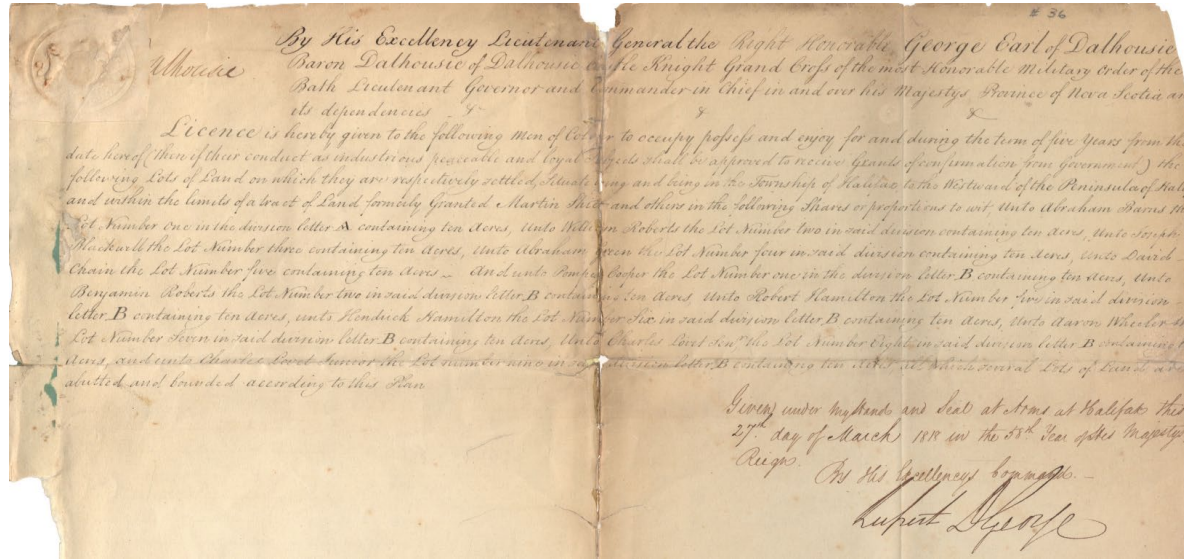 # 36
By His Excellency Lieutenant General the Right Honorable George Earl of Dalhousie
Dalhousie
Baron Dalhousie of Dalhousie Castle Knight Grand Cross of the most Honorable Military Order of the
Bath Lieutenant Governor and Commander in Chief in and over his Majestys Province of Nova Scotia an
its dependencies & &
Licence is hereby given to the following Men of Colour to occupy possess and enjoy for and during the term of five Years from the
date hereof (then if their conduct as industrious peaceable and loyal Subjects shall be approved to receive Grants of confirmation from Government) the
following Lots of Land on which they are respectively settled, Situate lying and being in the Township of Halifax to the Westward of the Peninsula of Hali
and within the limits of a tract of Land formerly Granted Martin and others in the following Shares or proportions to wit, Unto Abraham Barns the
Lot Number one in the division letter A containing ten Acres, Unto William Roberts the Lot Number two in said division containing ten Acres, Unto Joseph
Blackwell the Lot Number three containing ten Acres, Unto Abraham Green the Lot Number four in said division containing ten Acres, Unto David
Chain the Lot Number five containing ten Acres _ And unto Pompey Cooper the Lot Number one in the division letter, B containing ten Acres, Unto
Benjamin Roberts the Lot Number two in said division letter, B containing ten Acres, Unto Robert Hamilton the Lot Number five in said division
letter, B containing ten Acres, unto Hendrick Hamilton the Lot Number Six in said division letter, B containing ten Acres, Unto Aaron Wheeler
Lot Number Seven in said division letter B containing ten Acres, Unto Charles Lovet Senr the Lot Number Eight in said division letter B containing t
Acres, and unto Charles Lovet Junior the Lot number nine in said division letter, B containing ten Acres all which several Lots of Land are
abutted and bounded according to this Plan
Given under my Hand and Seal at Arms at Halifax this
27th day of March 1818 in the 58th Year of His Majestys
Reign.
By His Excellencys Command _
Rupert D George